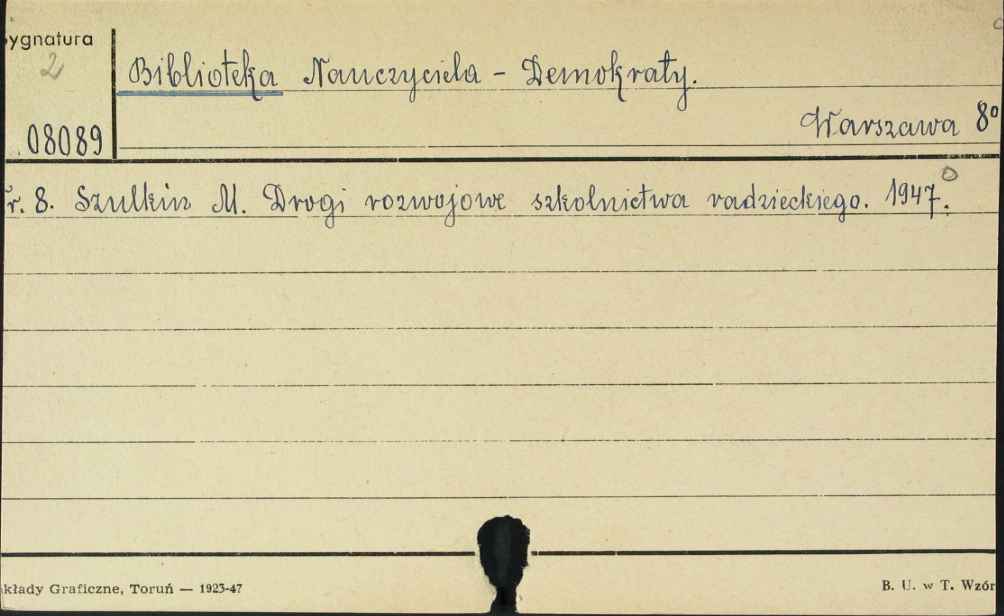 ygnatura
2
Biblioteka Nauczyciela - Demokraty.
Warszawa 8°
08089
r. 8. Szulkin M. Drogi rozwojowe szkolnictwa radzieckiego. 1947.
kłady Graficzne, Toruń — 1923-47
B. U. w T. Wzór